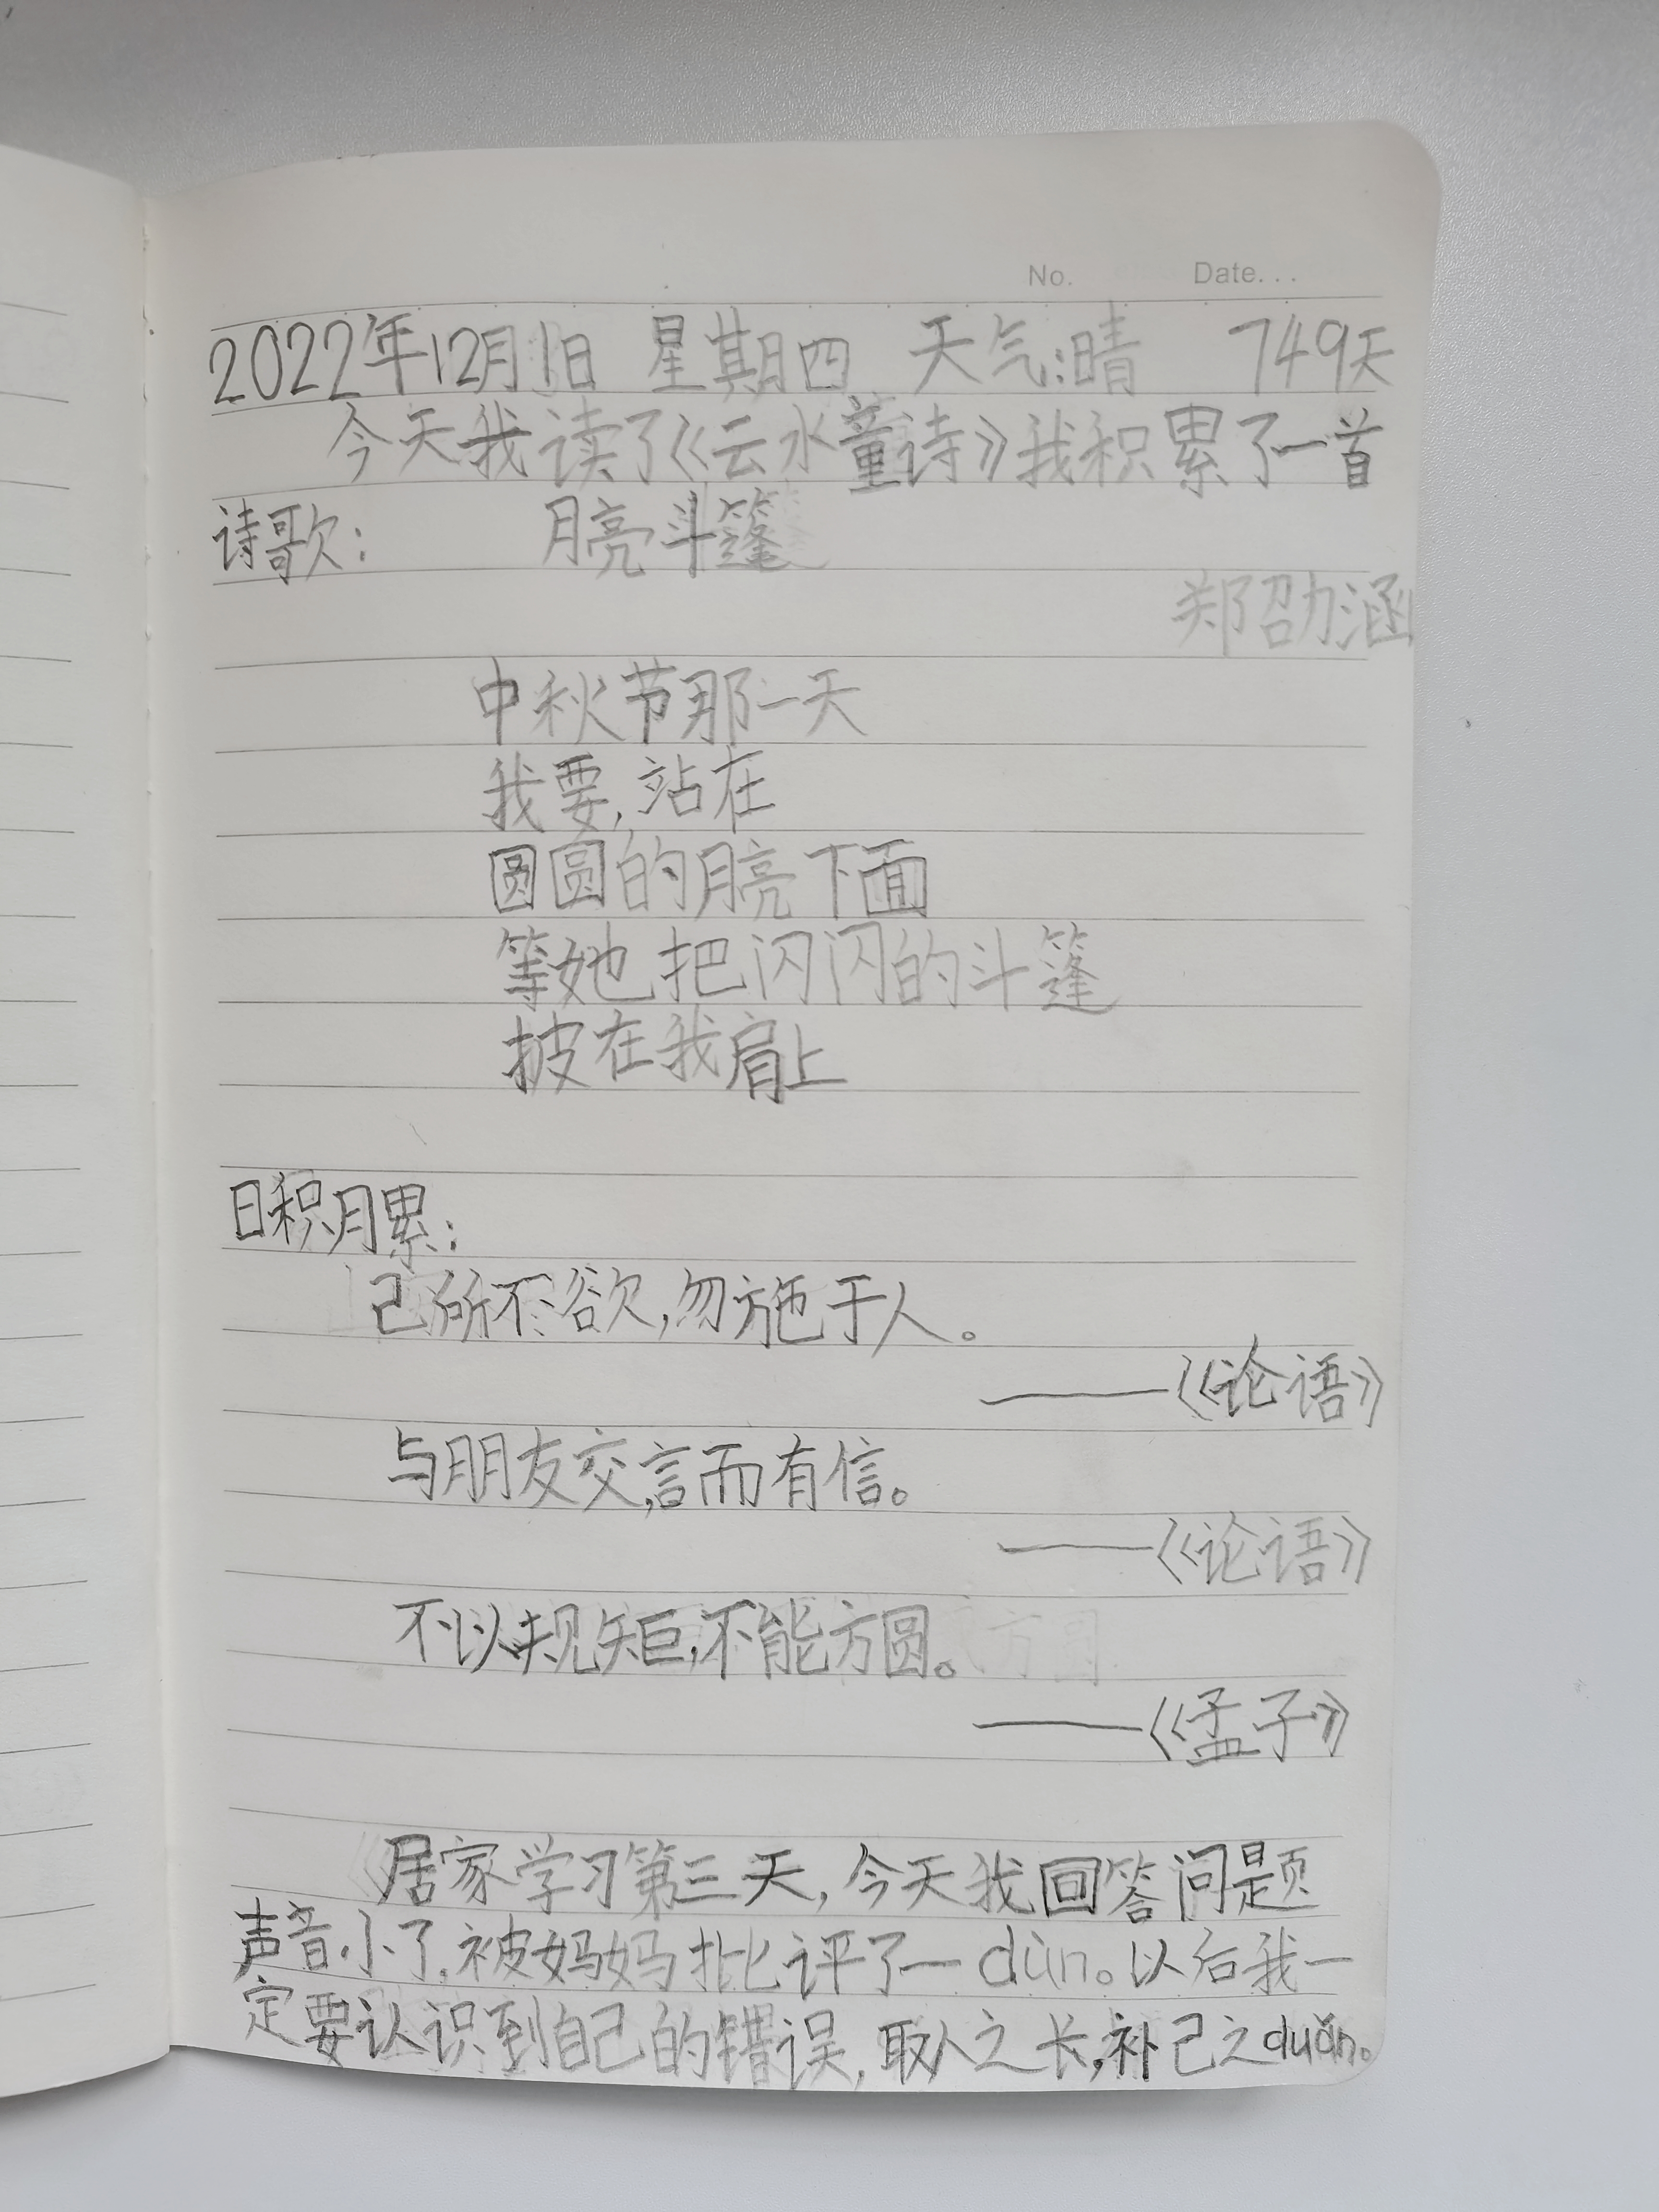 No. Date...
2022年12月1日 星期四 天气:晴 749天
今天我读了《云水童诗》我积累了一首
诗歌: 月亮斗篷
郑劭涵
中秋节那一天
我要,站在
圆圆的月亮下面
等她把闪闪的斗篷
披在我肩上
日积月累:
己所不欲,勿施于人。
——《论语》
与朋友交,言而有信。
——《论语》
不以规矩,不能方圆。
——《孟子》
居家学习第三天,今天我回答问题
声音小了,被妈妈批评了一dùn。以后我一
定要认识到自己的错误,取人之长,补己之duǎn。